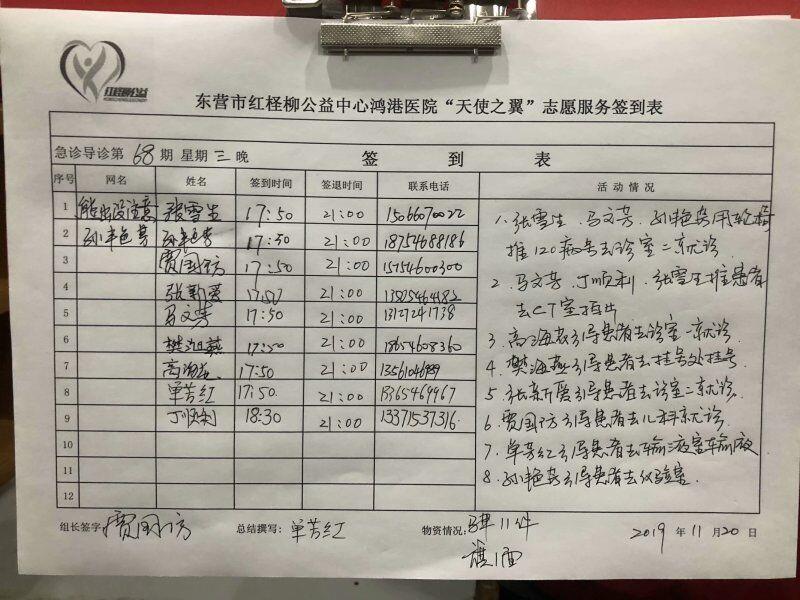 红柽柳公益
东营市红柽柳公益中心鸿港医院“天使之翼”志愿服务签到表
急诊导诊第 68 期 星期 三 晚 签 到 表
序号 网名 姓名 签到时间 签退时间 联系电话 活动情况
1 能出没注意 张雪生 17:50 21:00
2 孙艳芳 孙艳芳 17:50 21:00 18754688186
3 贾国防 17:50 21:00 15754600300
4 张新爱 17:50 21:00
5 马文芳 17:50 21:00 13127241738
6 樊海燕 17:50 21:00 18654608360
7 17:50 21:00
8 单芳红 17:50 21:00
9 丁顺利 18:30 21:00 13371537316
10
11
12
1、张雪生、马文芳、孙艳芳用轮椅
推120病号去诊室二就诊
2、马文芳、丁顺利、张雪生推患者
去CT室拍片
3、引导患者去诊室一就诊
4、樊海燕引导患者去挂号处挂号
5、张新爱引导患者去诊室二就诊
6、贾国防引导患者去儿科就诊
7、单芳红引导患者去输液室输液
8、孙艳芳引导患者去化验室
组长签字: 贾国防 总结撰写: 单芳红 物资情况: 11件 2019 年 11 月 20 日